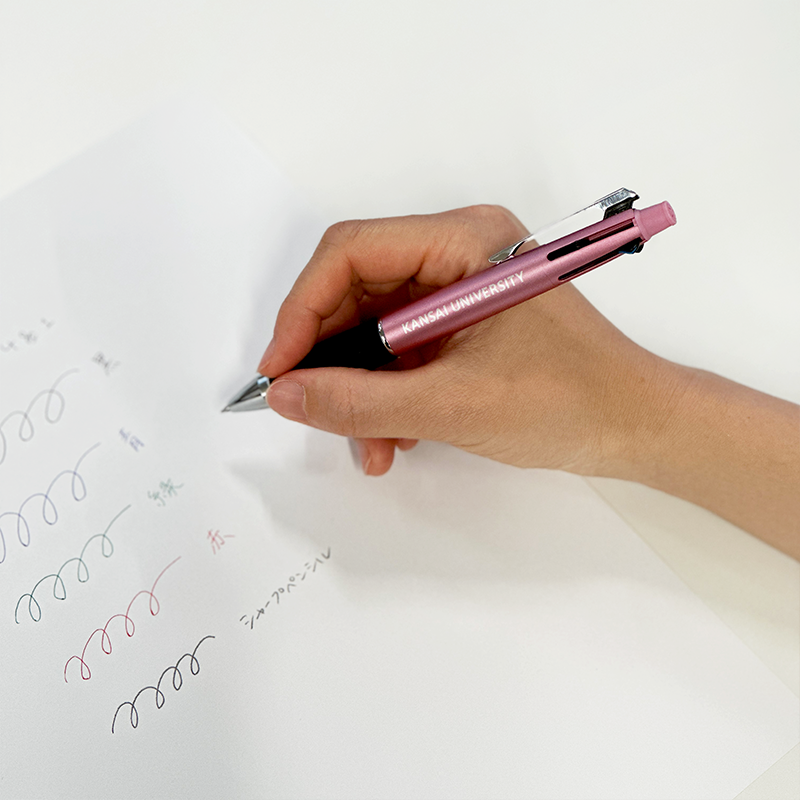 黒
青
緑
赤
シャープペンシル
KANSAI UNIVERSITY